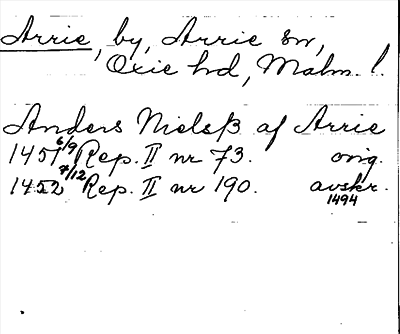 Arrie, by, Arrie sn,
Oxie hd, Malm. l.
Anders Nielsß af Arrie
1451 6/9 Rep. II nr 73. orig.
1452 7/12 Rep. II nr 190. avskr.
1494